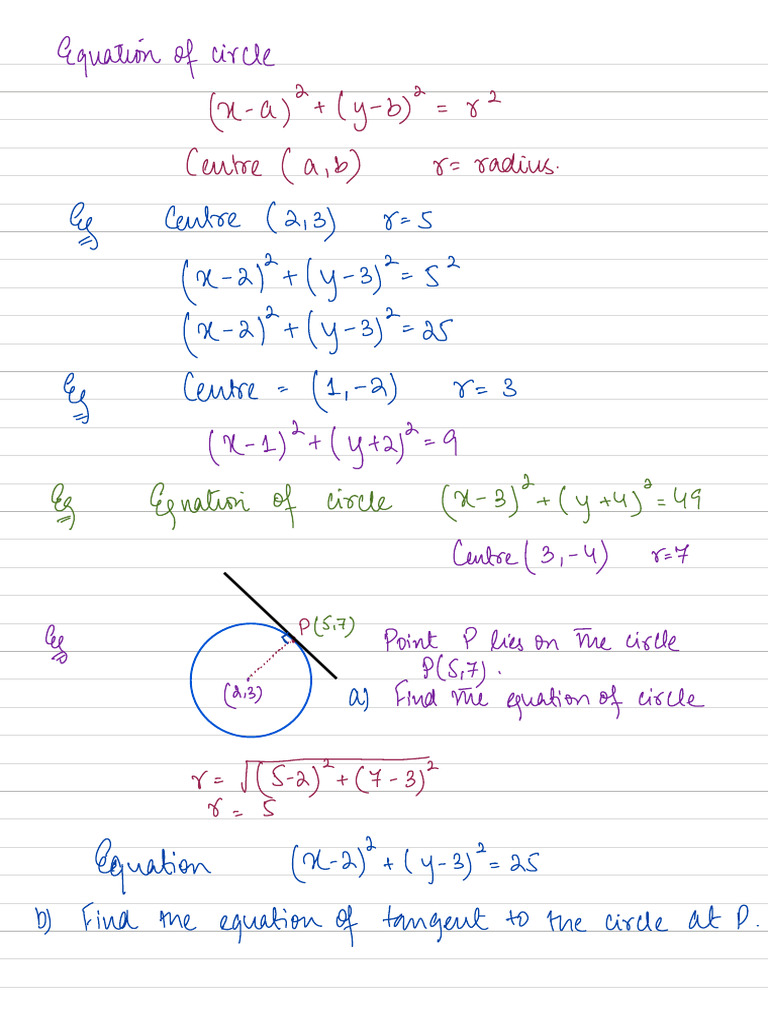 Equation of circle
(x-a)² + (y-b)² = r²
Centre (a,b) r = radius.
Eg Centre (2,3) r = 5
(x-2)² + (y-3)² = 5²
(x-2)² + (y-3)² = 25
Eg Centre = (1,-2) r = 3
(x-1)² + (y+2)² = 9
Eg Equation of circle (x-3)² + (y+4)² = 49
Centre (3,-4) r=7
Eg
P(5,7)
(2,3)
Point P lies on the circle
P(5,7).
a) Find the equation of circle
r = √(5-2)² + (7-3)²
r = 5
Equation (x-2)² + (y-3)² = 25
b) Find the equation of tangent to the circle at P.